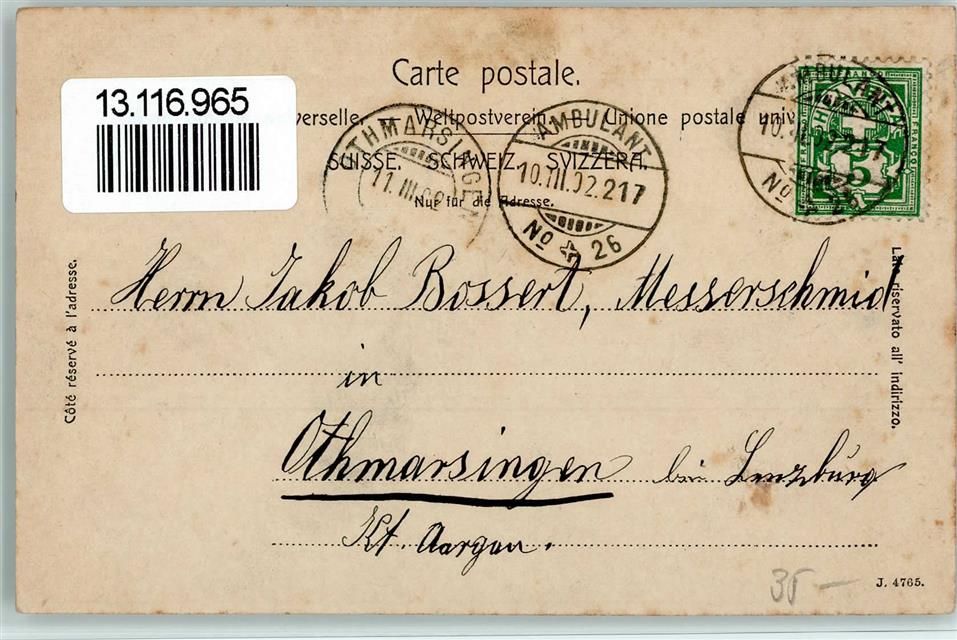 Carte postale.
13.116.965
verselle. Weltpostverein. Unione postale univ
SUISSE. SCHWEIZ. SVIZZERA.
Nur für die Adresse.
OTHMARSINGEN
11.III.02
AMBULANT
10.III.02.217
No 26
AMBULANT
10.III.02.217
No
FRANCO
5
Côté réservé à l'adresse.
Lato riservato all' indirizzo.
Herrn Jakob Bossert, Messerschmid
in
Othmarsingen bei Lenzburg
Kt. Aargau.
35 —
J. 4765.